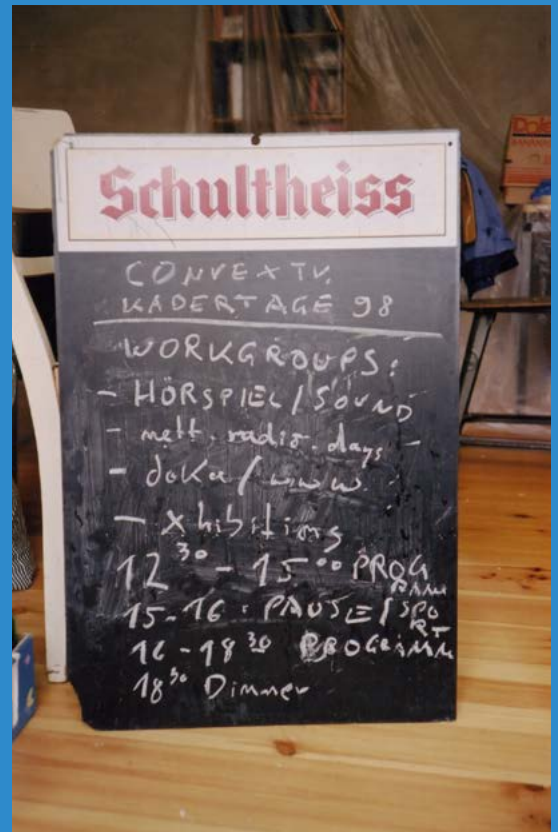 Schultheiss
CONVEX TV.
KADERTAGE 98
WORKGROUPS:
- HÖRSPIEL / SOUND
- nett.radio.days -
- doku / www
- xhibitions
12³⁰ - 15⁰⁰ PROG
RAMM
15-16: PAUSE / SPO
RT
16-18³⁰ PROGRAMM
18³⁰ Dinner